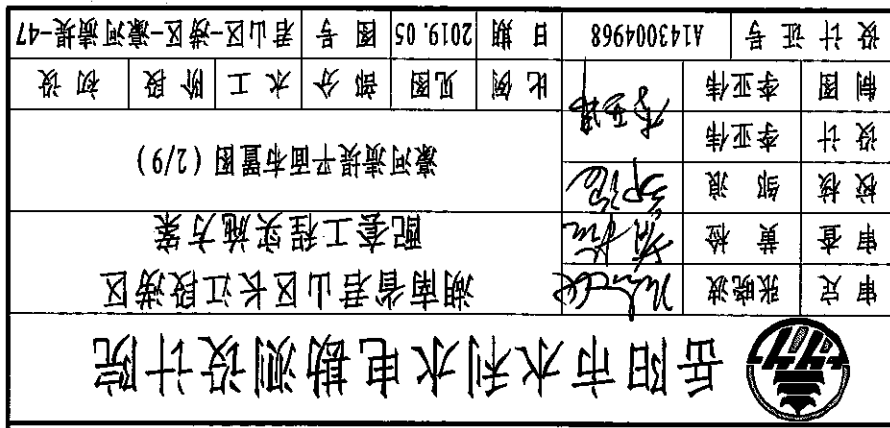 岳阳市水利水电勘测设计院
审定 张晓波 湖南省君山区长江段涝区
审查 黄检 配套工程实施方案
校核 邹浪
设计 李亚伟 濠河渍堤平面布置图(2/9)
制图 李亚伟 比例 见图 部分 水工 阶段 初设
设计证号 A143004968 日期 2019.05 图号 君山区-涝区-濠河渍堤-47